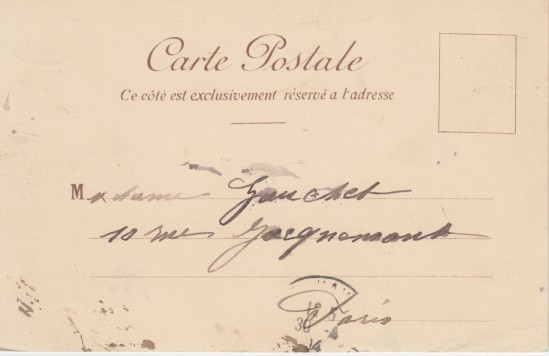 Carte Postale
Ce côté est exclusivement réservé a l'adresse
Madame Gauchet
10 rue Jacquemont
Paris